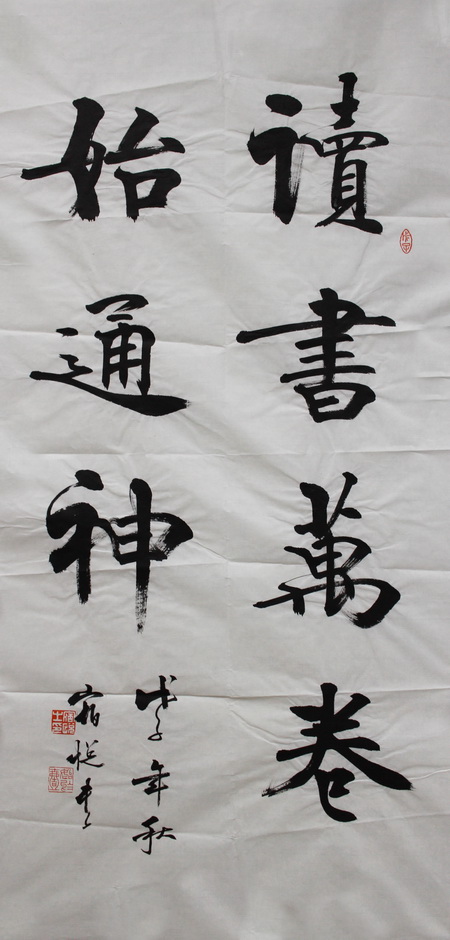 讀書萬卷
始通神
戊子年秋